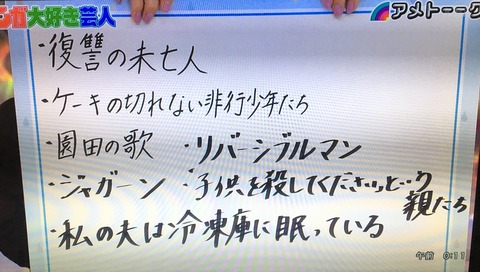 ンガ大好き芸人
アメトーーク
・復讐の未亡人
・ケーキの切れない非行少年たち
・園田の歌 ・リバーシブルマン
・ジャガーン ・子供を殺してくださいという
親たち
・私の夫は冷凍庫に眠っている
午前 0:11